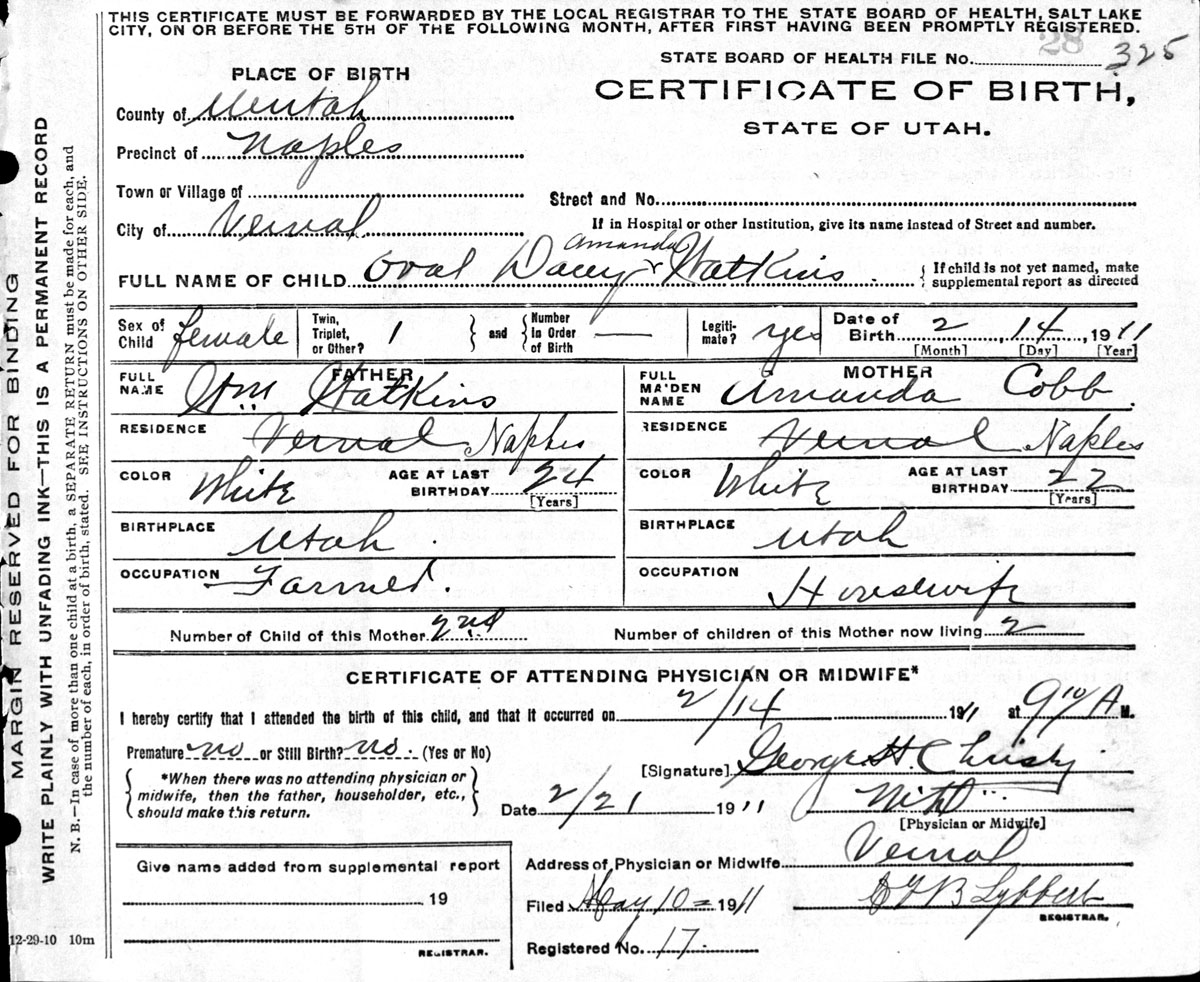 THIS CERTIFICATE MUST BE FORWARDED BY THE LOCAL REGISTRAR TO THE STATE BOARD OF HEALTH, SALT LAKE
CITY, ON OR BEFORE THE 5TH OF THE FOLLOWING MONTH, AFTER FIRST HAVING BEEN PROMPTLY REGISTERED.
28
STATE BOARD OF HEALTH FILE No. 325
PLACE OF BIRTH
CERTIFICATE OF BIRTH,
STATE OF UTAH.
County of Uintah
Precinct of Naples
Town or Village of
Street and No.
City of Vernal
If in Hospital or other Institution, give its name instead of Street and number.
Amanda
FULL NAME OF CHILD Oval Watkins
If child is not yet named, make
supplemental report as directed
Sex of Child female
Twin, Triplet, or Other? 1
and
Number In Order of Birth —
Legiti-mate? yes
Date of Birth 2, 14, 1911
[Month] [Day] [Year]
FATHER
FULL NAME Wm Watkins
RESIDENCE Vernal Naples
COLOR White
AGE AT LAST BIRTHDAY 24
[Years]
BIRTHPLACE Utah
OCCUPATION Farmer.
MOTHER
FULL MAIDEN NAME Amanda Cobb.
RESIDENCE Vernal Naples
COLOR White
AGE AT LAST BIRTHDAY 22
[Years]
BIRTHPLACE Utah
OCCUPATION Housewife
Number of Child of this Mother 2nd
Number of children of this Mother now living 2
CERTIFICATE OF ATTENDING PHYSICIAN OR MIDWIFE*
I hereby certify that I attended the birth of this child, and that it occurred on 2/14 1911 at 9 10/A M.
Premature no or Still Birth? no. (Yes or No)
*When there was no attending physician or
midwife, then the father, householder, etc.,
should make this return.
[Signature] George H. Christy
Date 2/21 1911
[Physician or Midwife]
Address of Physician or Midwife Vernal
Filed May 10 = 1911
Lybbert
REGISTRAR.
Registered No. 17
Give name added from supplemental report
19
REGISTRAR.
12-29-10 10m
MARGIN RESERVED FOR BINDING
WRITE PLAINLY WITH UNFADING INK—THIS IS A PERMANENT RECORD
N. B.—In case of more than one child at a birth, a SEPARATE RETURN must be made for each, and
the number of each, in order of birth, stated. SEE INSTRUCTIONS ON OTHER SIDE.